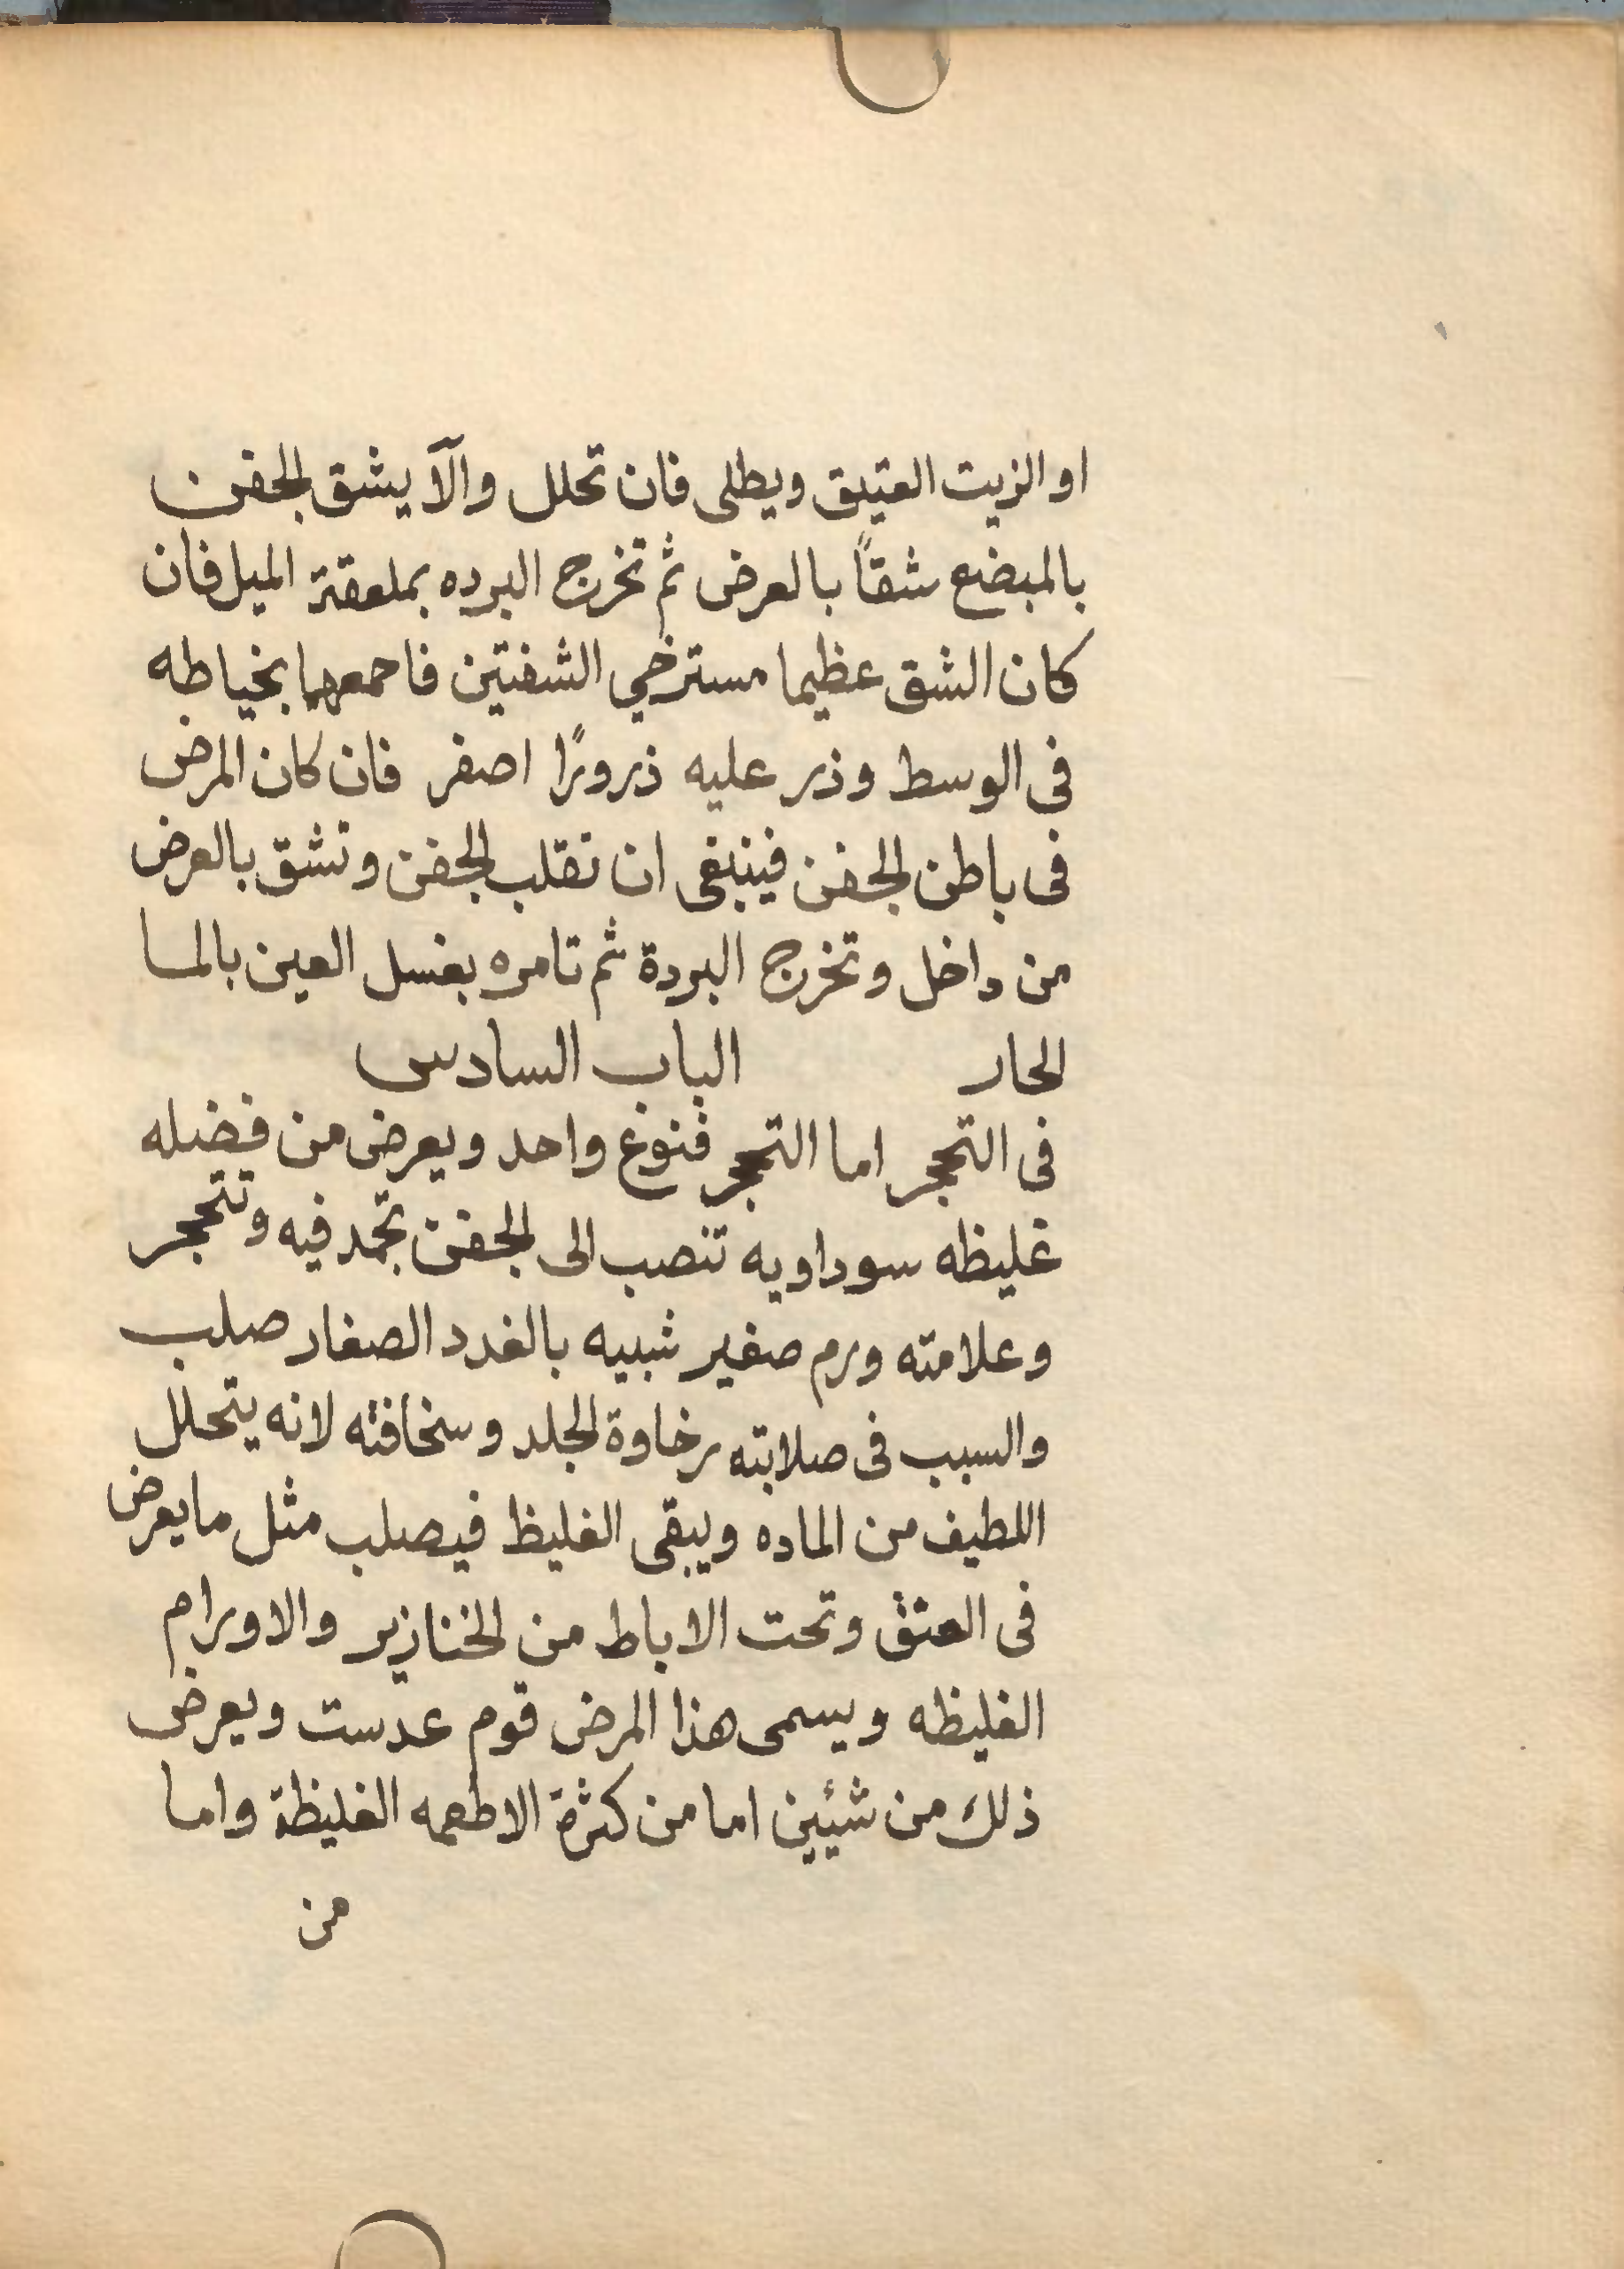 او الزيت العتيق ويطلى فان تحلل والّا يشق الجفن
بالمبضع شقاً بالعرض ثم تخرج البرده بملعقة الميل فان
كان الشق عظيما مسترخي الشفتين فاجمعهما بخياطه
فى الوسط وذر عليه ذرورًا اصفر فان كان المرض
فى باطن الجفن فينبغى ان تقلب الجفن وتشق بالعرض
من داخل وتخرج البردة ثم تامره بغسل العين بالما
الحار الباب السادس
فى التحجر اما التحجر فنوع واحد ويعرض من فضله
غليظه سوداويه تنصب الى الجفن تجمد فيه وتتحجر
وعلامته ورم صغير شبيه بالغدد الصغار صلب
والسبب فى صلابته رخاوة الجلد وسخافته لانه يتحلل
اللطيف من الماده ويبقى الغليظ فيصلب مثل ما يعرض
فى العنق وتحت الاباط من الخنازير والاورام
الغليظه ويسمى هذا المرض قوم عدست ويعرض
ذلك من شيئين اما من كثرة الاطعمه الغليظة واما
من